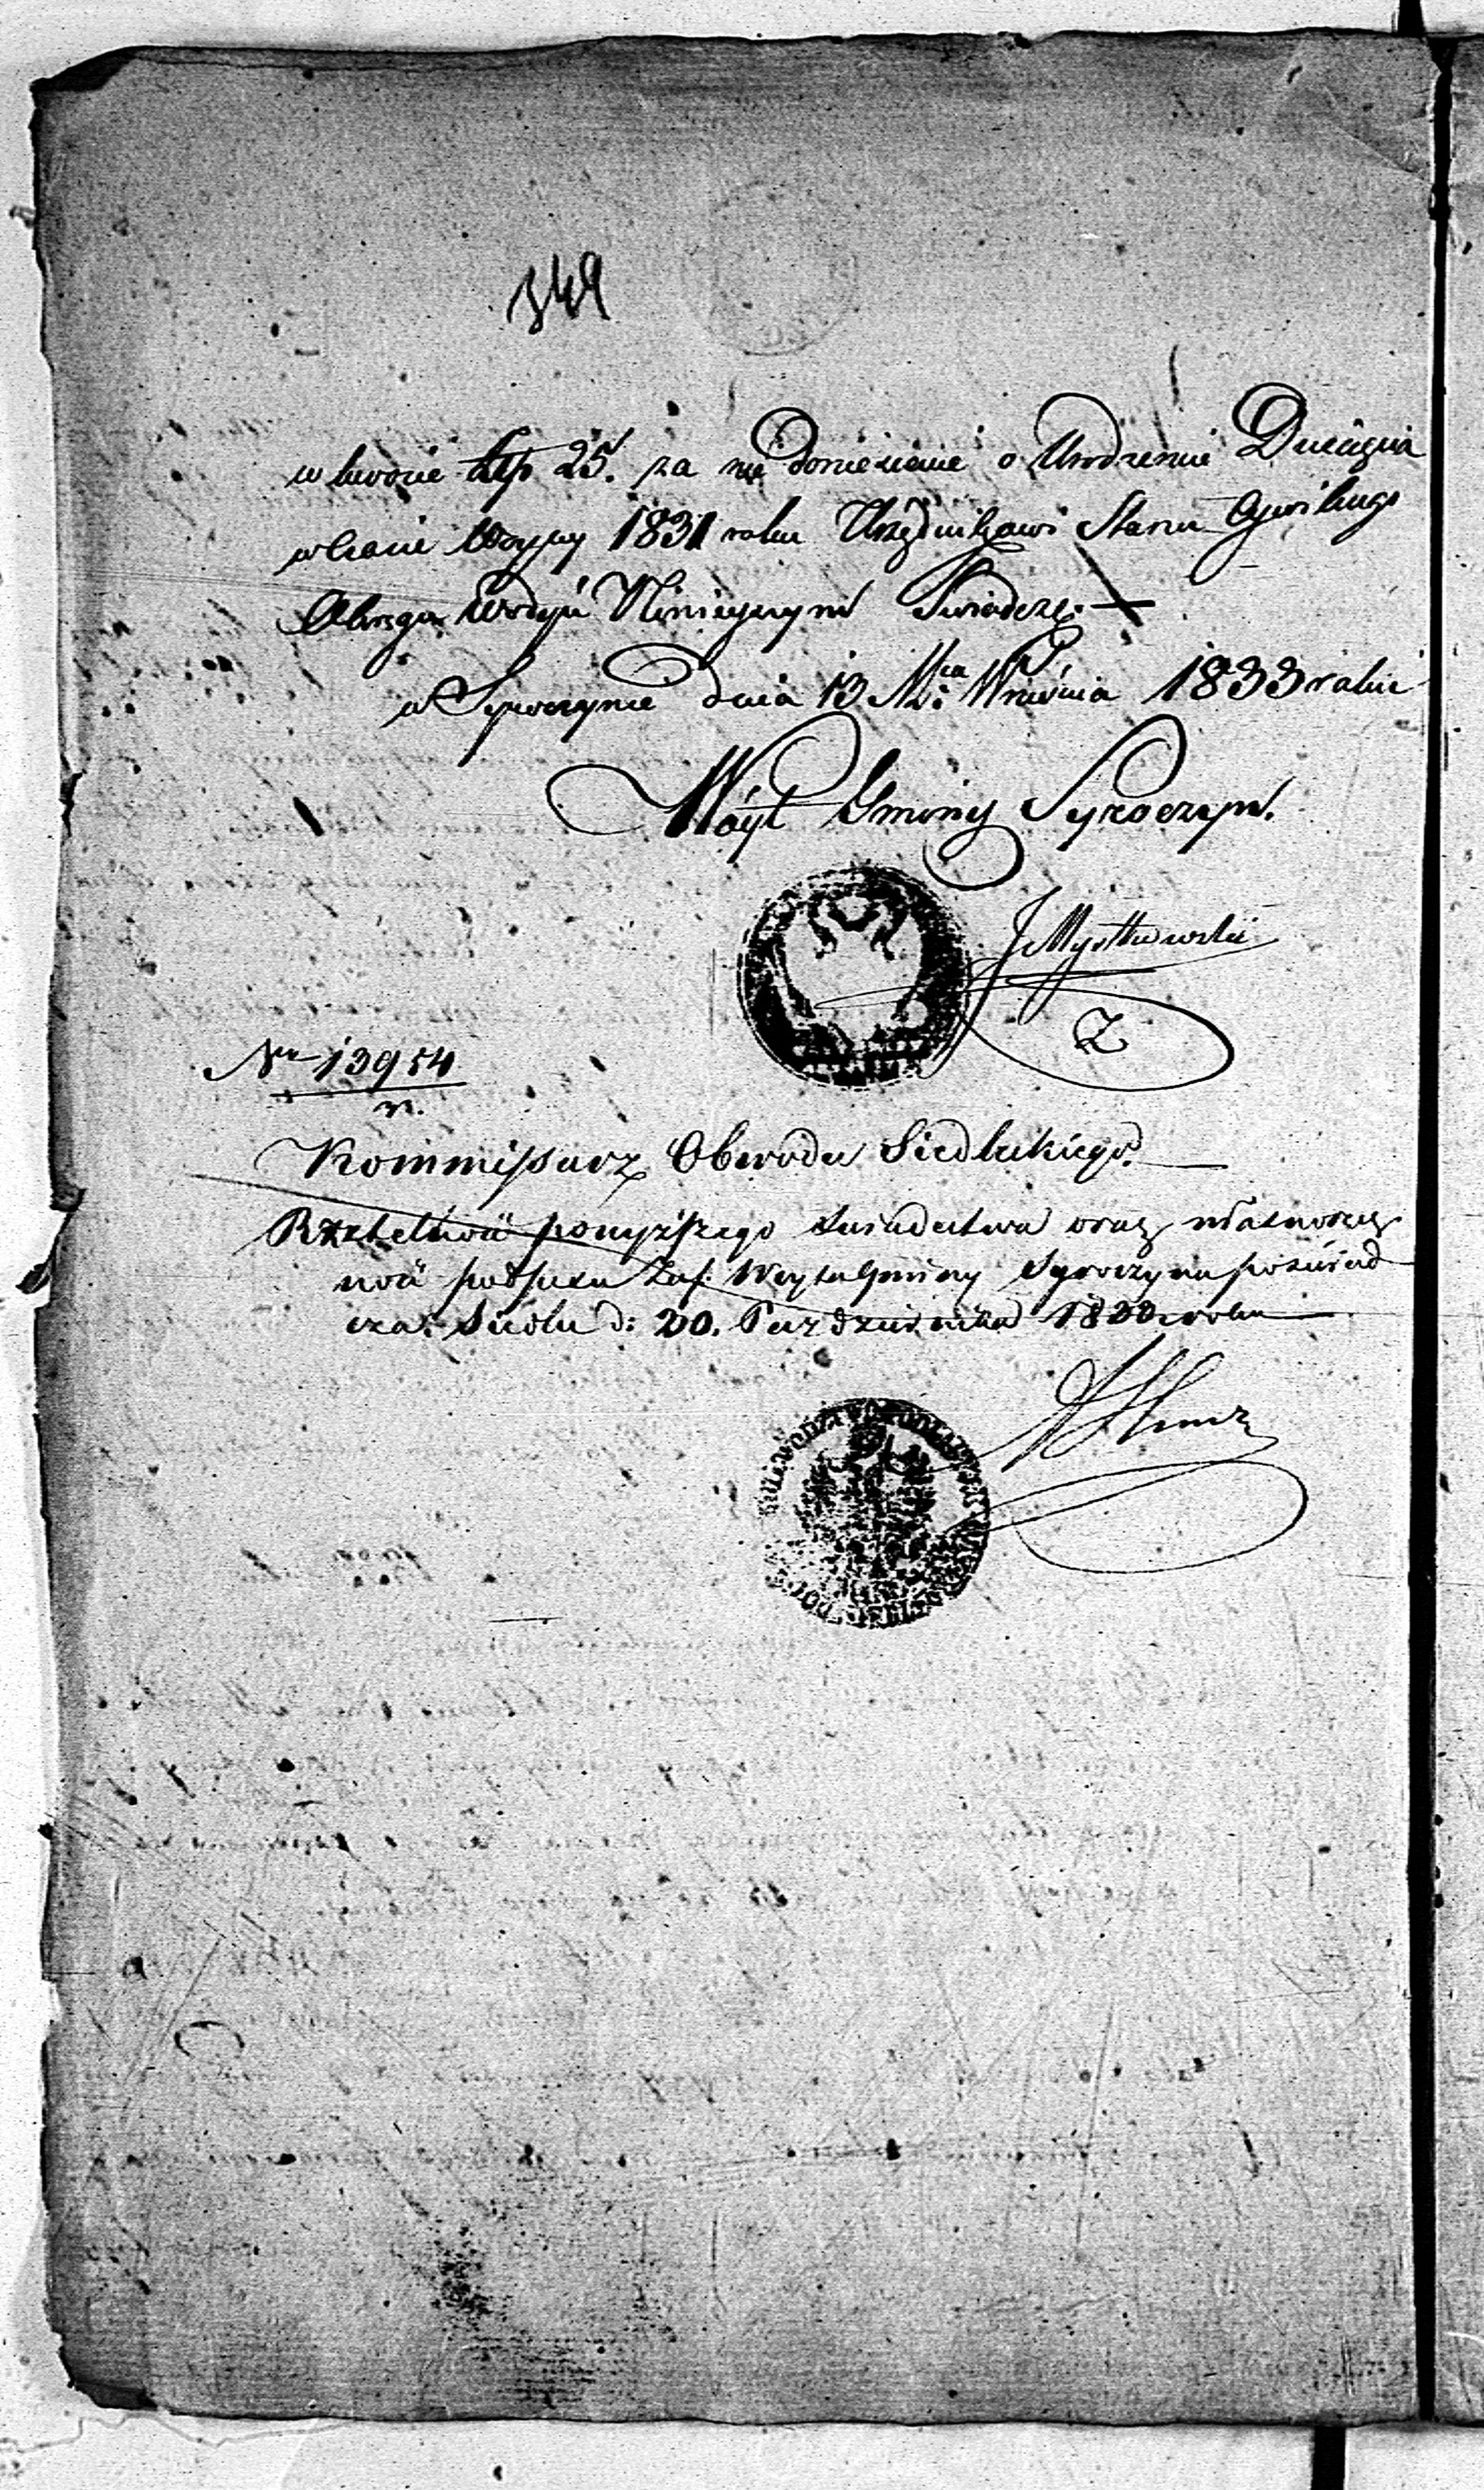 349
w kwocie złp 25. za nie doniesienie o Urodzeniu Dziecięcia
w czasie Woyny 1831 roku Urzędnikowi Stanu Cywilnego
Okręgu Wodyń Ninieyszym Swiadczę.
w Syroczynie dnia 13 Mca Września 1833 roku
Wóyt Gminy Syroczyn.
J Mystkowski
Z
Nr 13954
Kommissarz Obwodu Siedleckiego.
Rzetelność powyższego świadectwa oraz własnoręcz
ność podpisu Zas. Woyta Gminy Syroczyna poświad
cza. Siedlce d: 20. Października 1833 roku